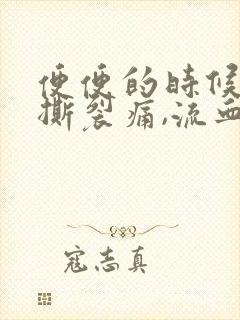 便便的时候
撕裂痛,流血
寇志真